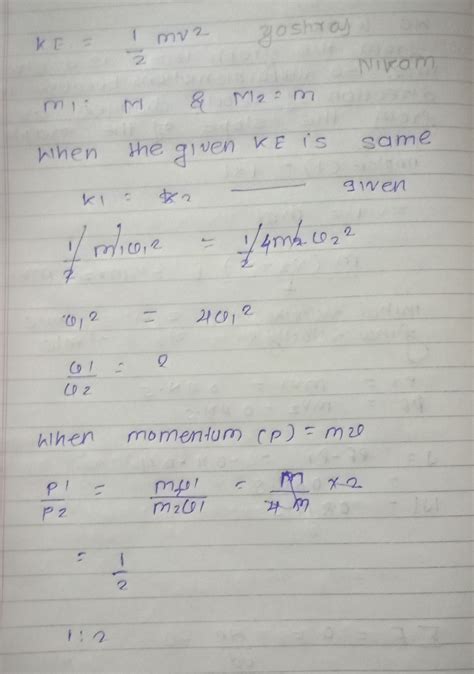 KE = 1/2 mv2 yoshraj
Nikam
m1: M & M2 = m
When the given KE is same
K1 = K2 —— given
1/2 m1υ1 2 = 1/2 4m2 υ2 2
υ1 2 = 4υ1 2
υ1/υ2 = 2
When momentum (P) = mυ
P1/P2 = m1υ1/m2υ1 = M/4M × 2
= 1/2
1:2